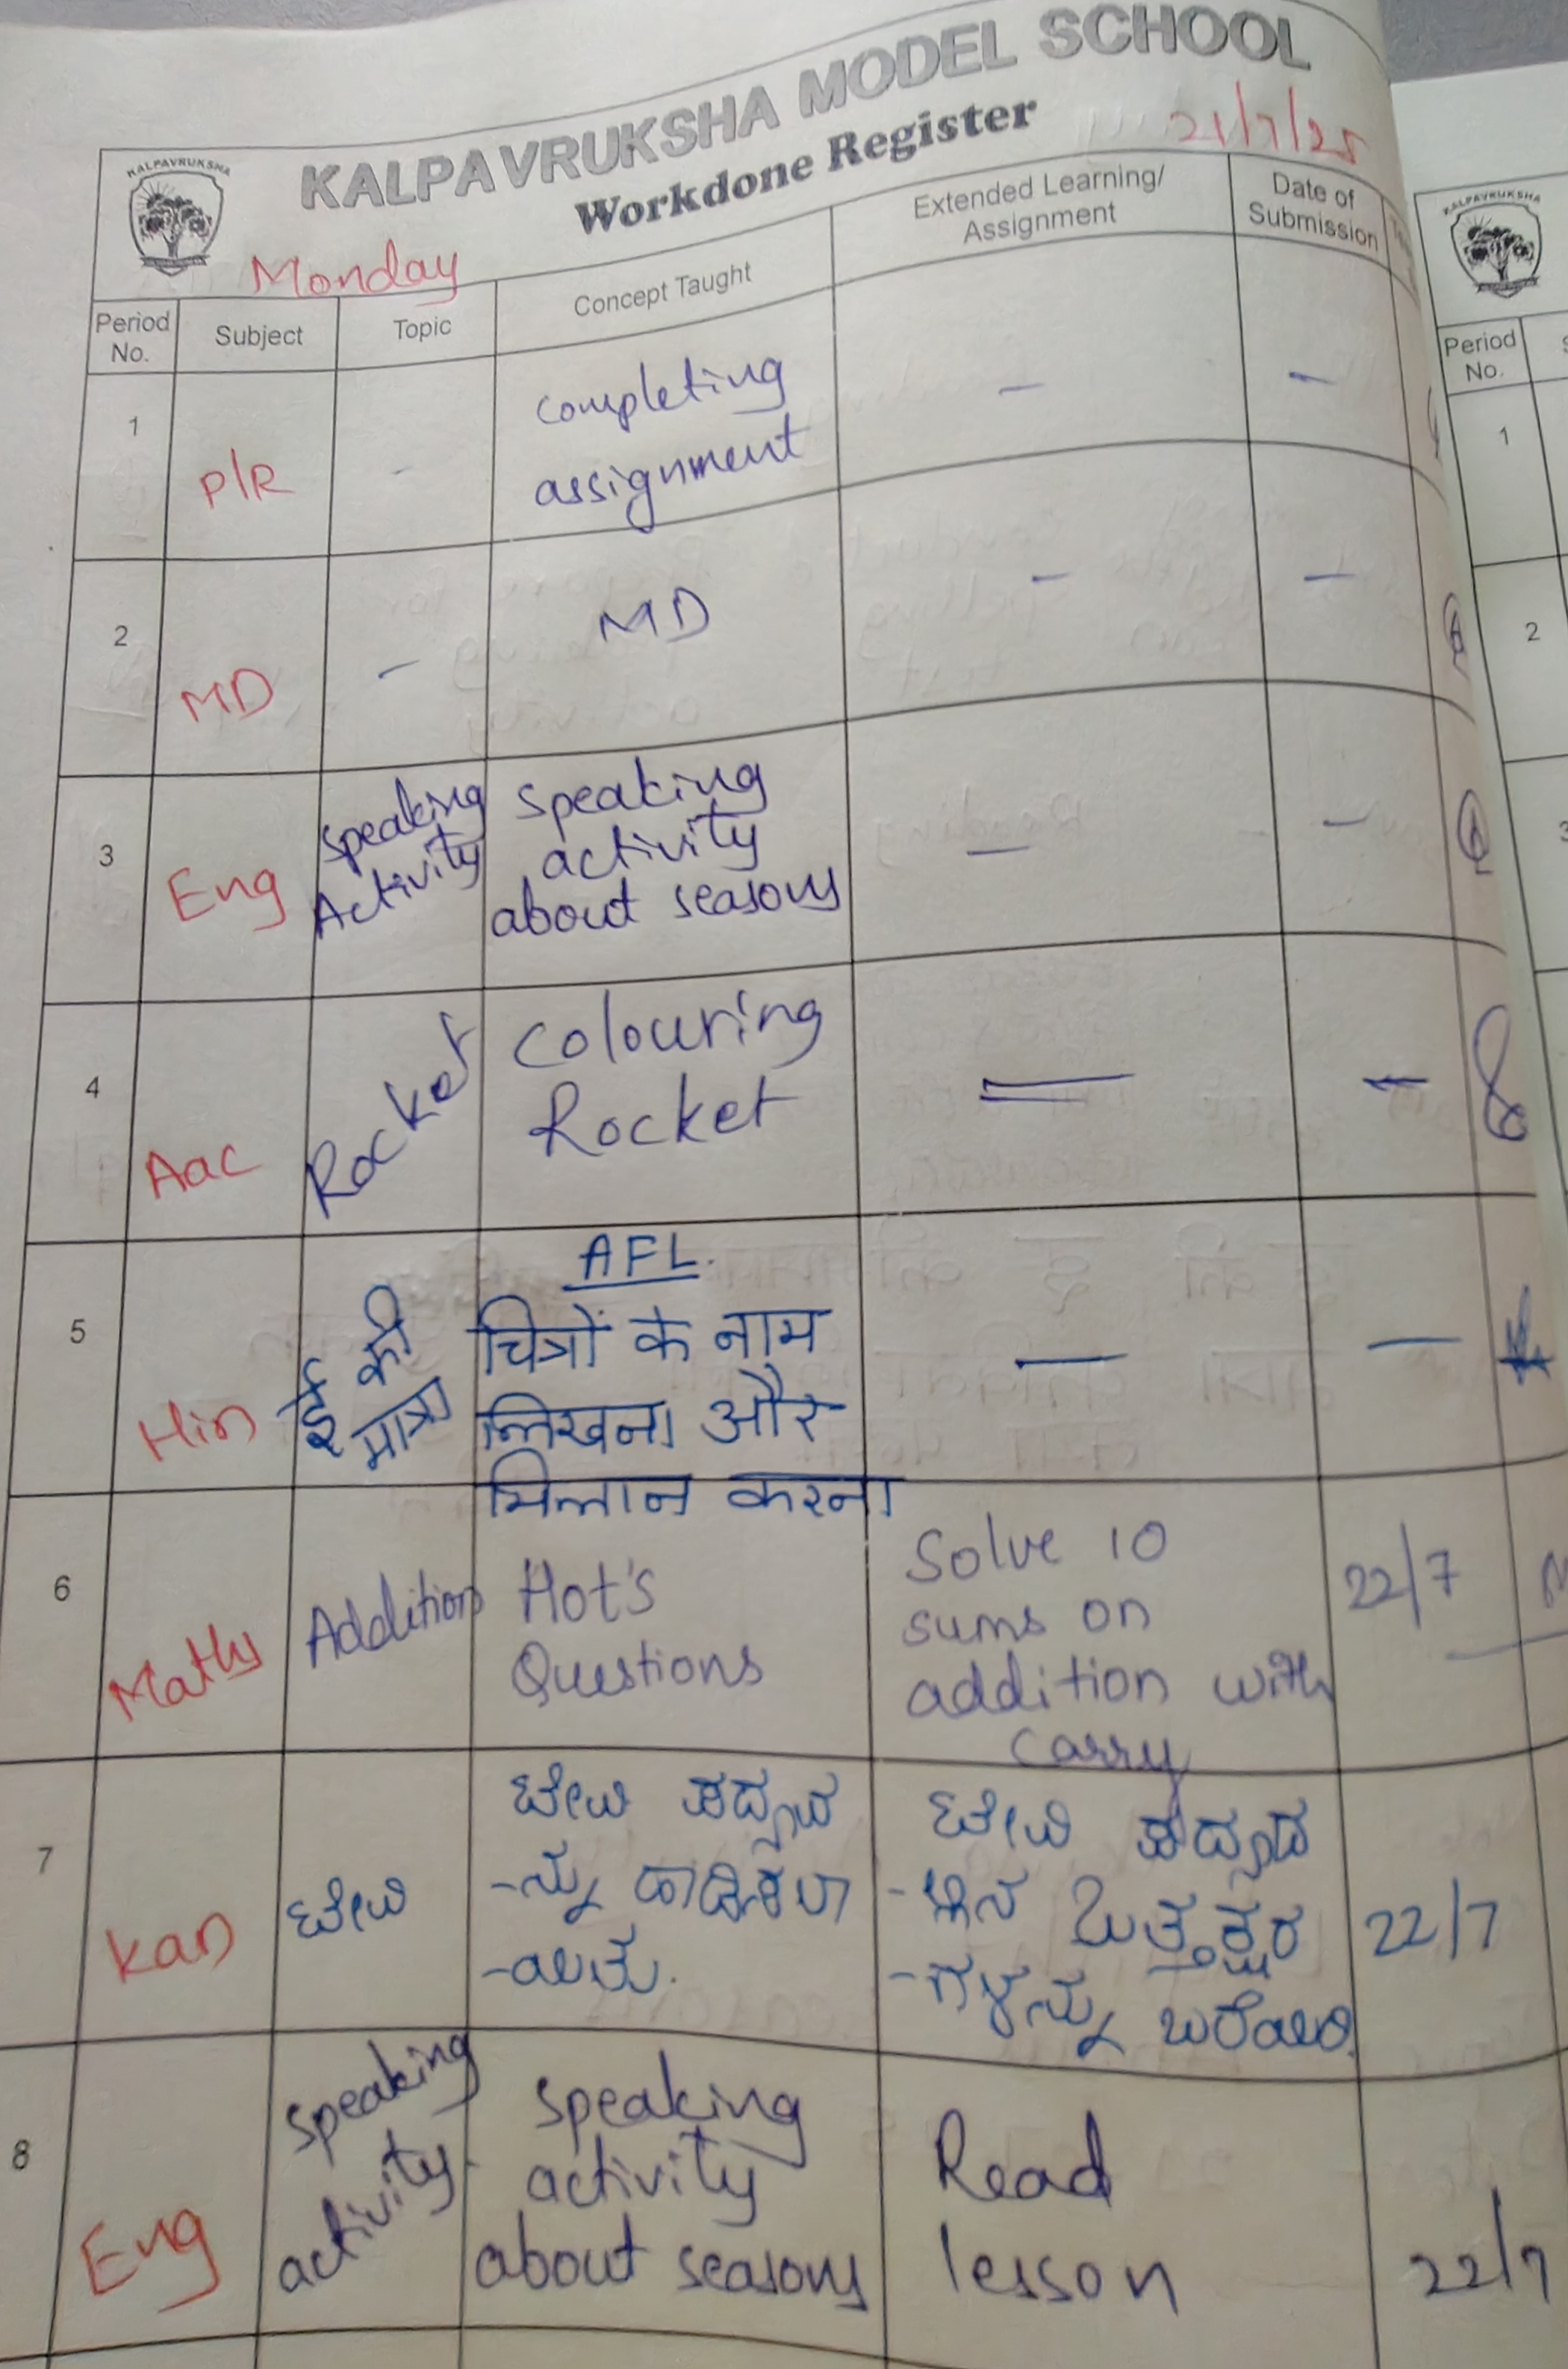 KALPAVRUKSHA MODEL SCHOOL
Workdone Register
21/7/25
KALPAVRUKSHA
Monday
Period No.
Subject
Topic
Concept Taught
Extended Learning/
Assignment
Date of
Submission
1
P/R
-
completing
assignment
-
-
2
MD
-
MD
-
-
3
Eng
Speaking
Activity
Speaking
activity
about seasons
-
-
4
Aac
Rocket
Colouring
Rocket
-
-
5
Hin
ई की
मात्रा
AFL.
चित्रों के नाम
लिखना और
मिलान करना
-
-
6
Maths
Addition
Hot's
Questions
Solve 10
sums on
addition with
carry
22/7
7
Kan
ಬೇವಿ ಪದ್ಯವ
-ನ್ನು
ಪದ್ಯದ
ಒತ್ತಕ್ಷರ
-ಗಳನ್ನು ಬರೆಯಿರಿ.
22/7
8
Eng
Speaking
activity
Speaking
activity
about seasons
Read
lesson
22/7
KALPAVRUKSHA
Period
No.
1
2
3